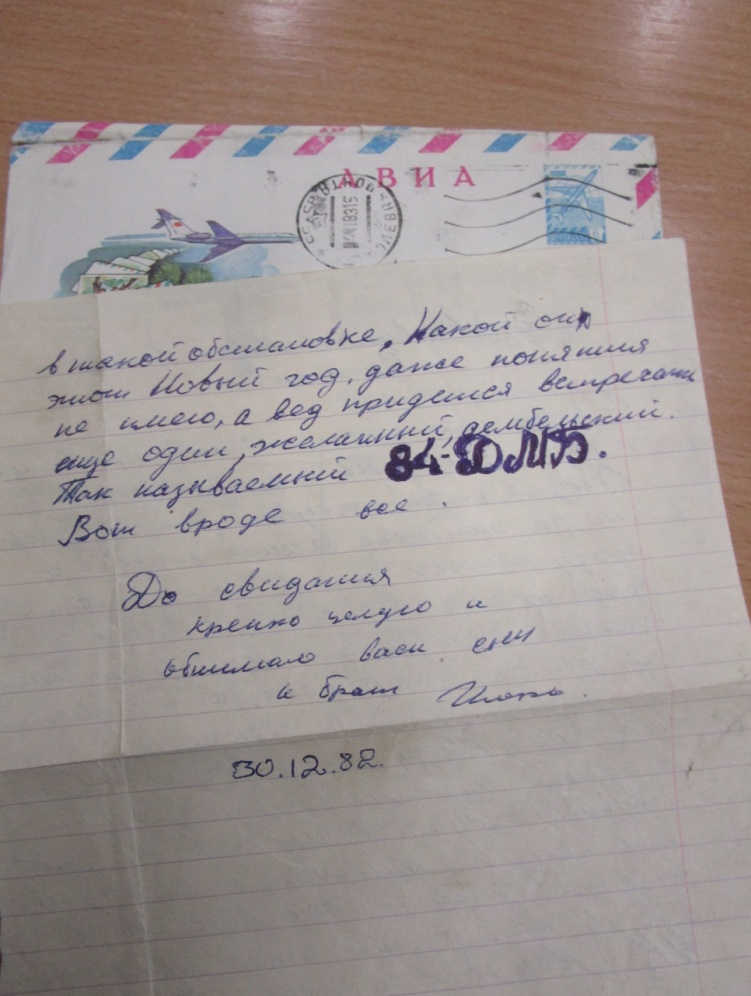 АВИА
в такой обстановке. Какой он
этот Новый год, даже понятия
не имею, а вед придется встречать
еще один, желанный, дембельский.
Так называемый 84-ДМБ.
Вот вроде все.
До свидания
крепко целую и
обнимаю ваш сын
и брат
30.12.82.